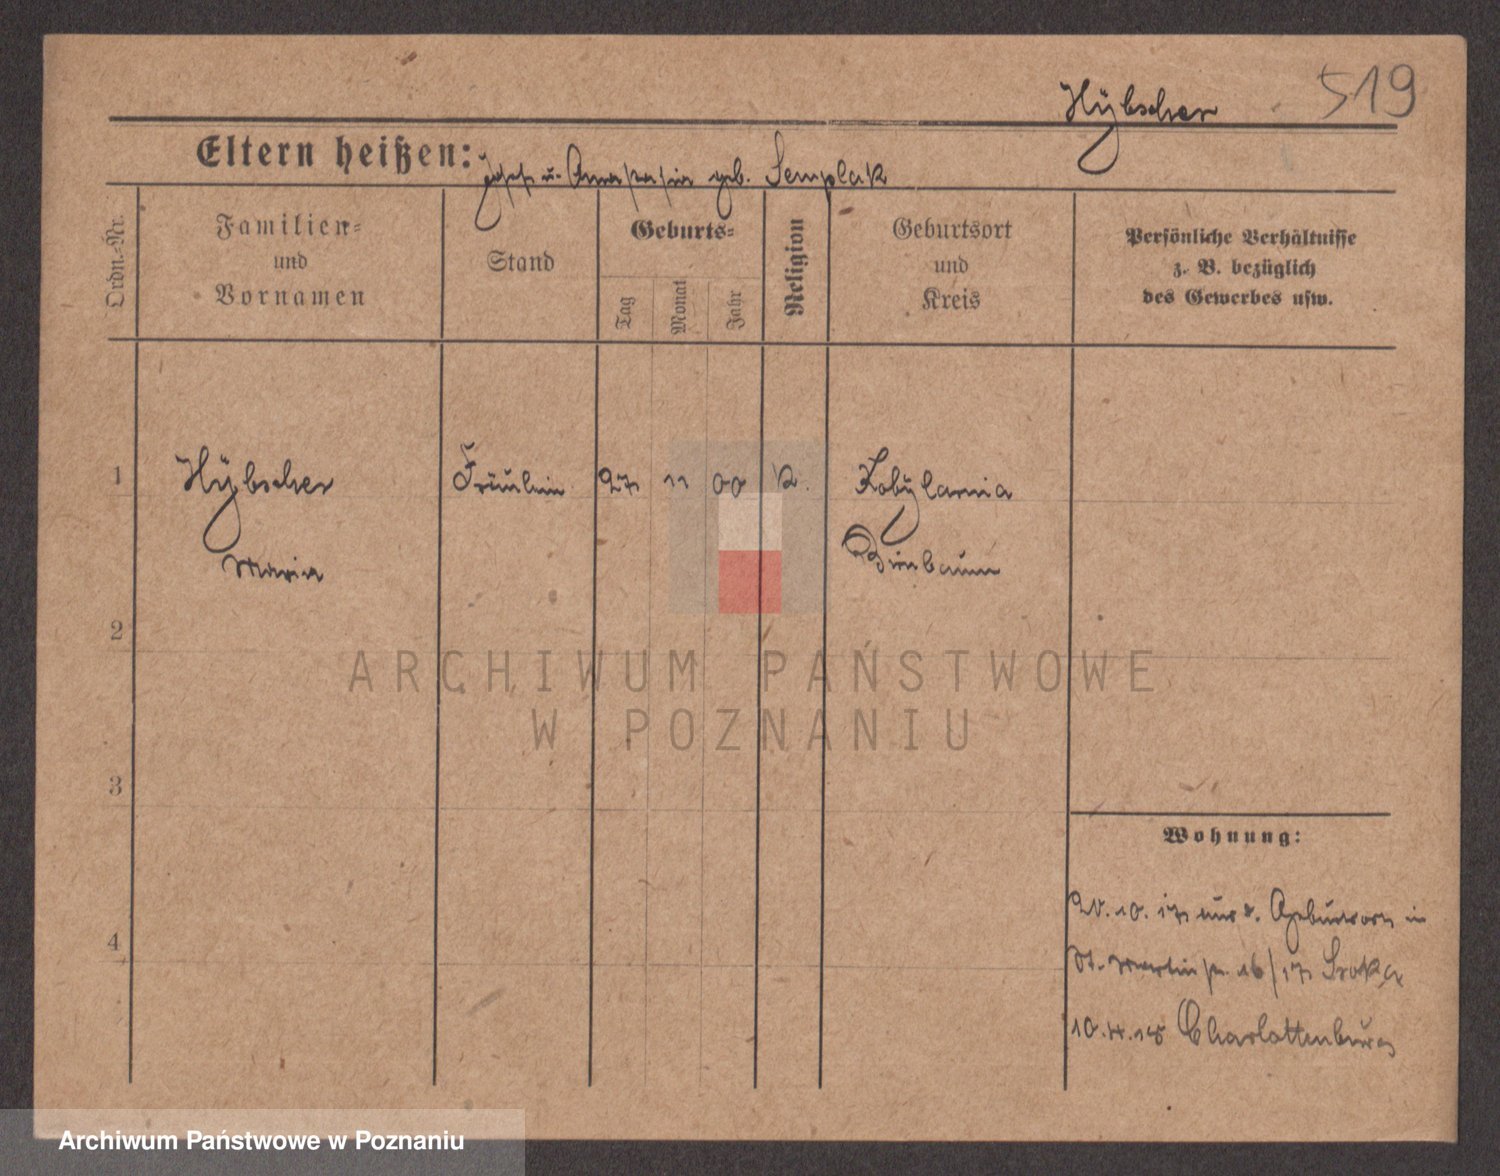 Hÿbscher 519
Eltern heißen: Josef u. Anastasia geb. Semplak
Ordn.-Nr.
Familien-
und
Vornamen
Stand
Geburts-
Tag
Monat
Jahr
Religion
Geburtsort
und
Kreis
Persönliche Verhältnisse
z. B. bezüglich
des Gewerbes usw.
1 Hÿbscher Fräulein 27 11 00 K. Kobylarnia
Maria Birnbaum
2
3
4
Wohnung:
20.10.17 aus d. Geburtsort in
St. Martinstr. 16/17 Sroka
10.4.18 Charlottenburg
ARCHIWUM PAŃSTWOWE
W POZNANIU
Archiwum Państwowe w Poznaniu